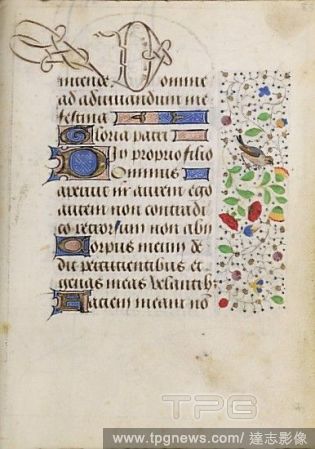 intende Domine
ad adiuuandum me
festina
Gloria patri
proprio filio
Dominus
aperuit m aurem ego
autem non contradi
co retrorsum non abii
Corpus meum de
di percutientibus et
genas meas vellentib
Faciem meam nō
TPG
www.tpgnews.com/達志影像